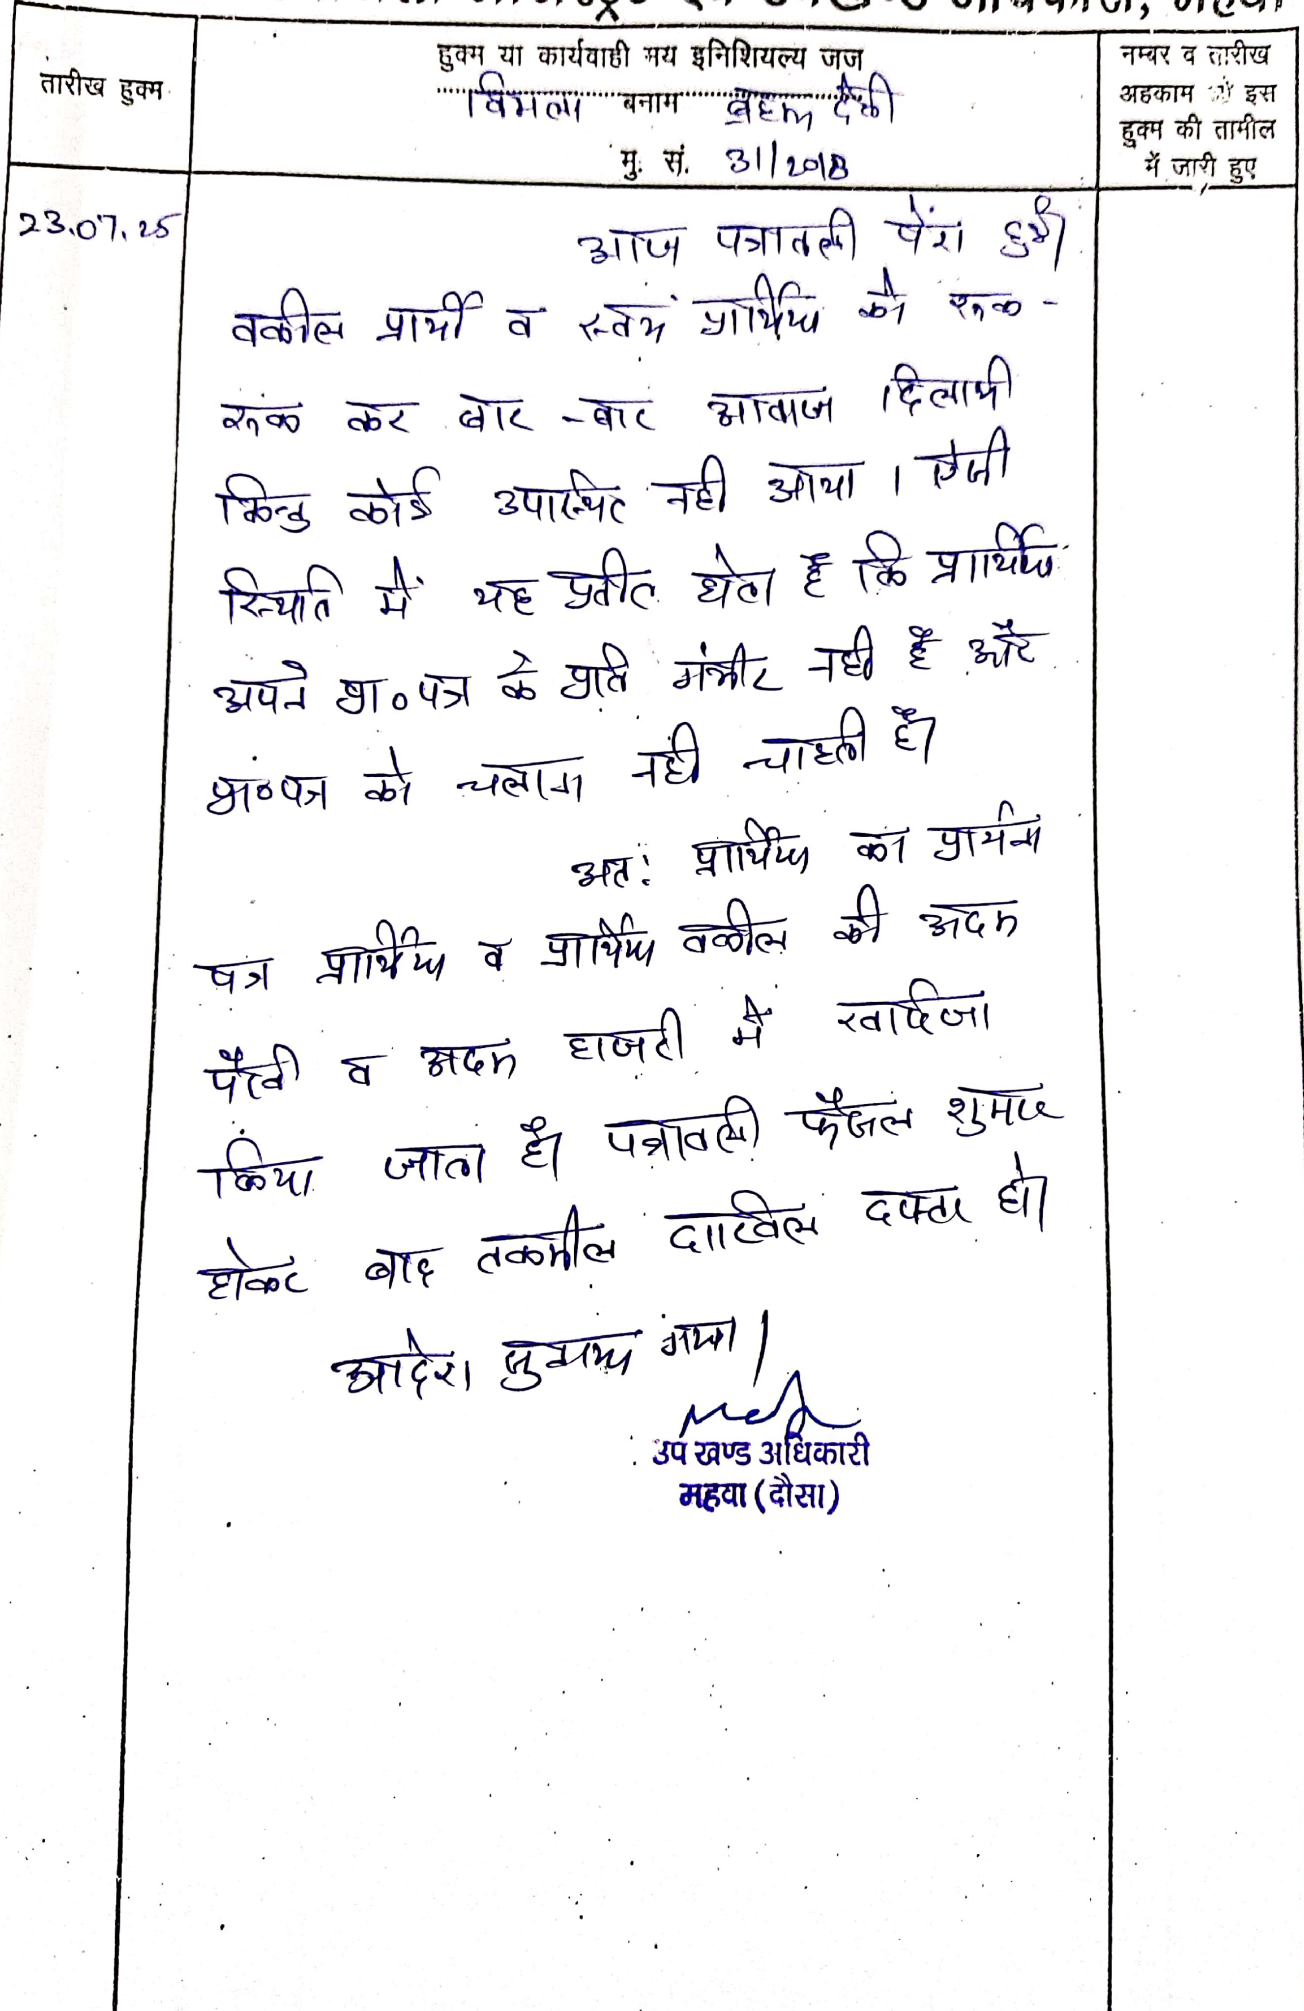 तारीख हुक्म
हुक्म या कार्यवाही मय इनिशियल्य जज
विमला बनाम ब्रहम देवी
मु. सं. 31/2018
नम्बर व तारीख
अहकाम जो इस
हुक्म की तामील
में जारी हुए
23.07.25
आज पत्रावली पेश हुई।
वकील प्रार्थी व स्वयं प्रार्थिया को रूक-
रूक कर बार-बार आवाज दिलायी
किन्तु कोई उपस्थित नही आया। ऐसी
स्थिति में यह प्रतीत होता है कि प्रार्थिया
अपने प्रा०पत्र के प्रति गंभीर नही है और
प्रा०पत्र को चलाना नही चाहती है।
अतः प्रार्थिया का प्रार्थना
पत्र प्रार्थिया व प्रार्थिया वकील की अदम
पैरवी व अदम हाजरी में खारिज
किया जाता है। पत्रावली फैसल शुमार
होकर बाद तकमील दाखिल दफ्तर हो।
आदेश सुनाया गया।
उप खण्ड अधिकारी
महवा (दौसा)